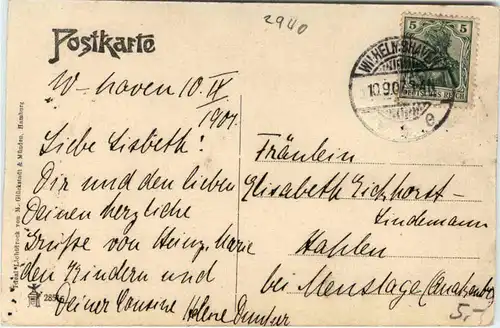 2940
Postkarte
5
WILHELMSHAVEN
10.9.07
DEUTSCHES REICH
W-haven 10. IX
1907.
Liebe Lisbeth!
Dir und den lieben
Deinen herzliche
Grüße von Heinz, Marie
den Kindern und
Deiner Cousine Helene
Fräulein
Elisabeth Eickhorst-
Lindemann
Hahlen
bei Menslage (Quakenbr.)
5.-
Lichtdruck von M. Glückstadt & Münden, Hamburg